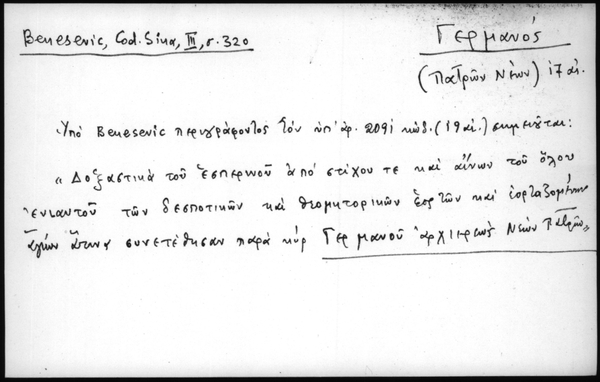 Benesevic, Cod. Sina, III, σ. 320
Γερμανός
(Πατρῶν Νέων) 17 αἰ.
Ὑπό Benesevic περιγράφοντος τόν ὑπ' ἀρ. 2091 κώδ. (19 αἰ.) σημειοῦται:
"Δοξαστικά τοῦ Ἑσπερινοῦ ἀπό στίχου τε καί αἴνων τοῦ ὅλου
ἐνιαυτοῦ τῶν δεσποτικῶν καί θεομητορικῶν ἑορτῶν καί ἑορταζομένων
ἁγίων ἅτινα συνετέθησαν παρά κύρ Γερμανοῦ ἀρχιερέως Νέων Πατρῶν"